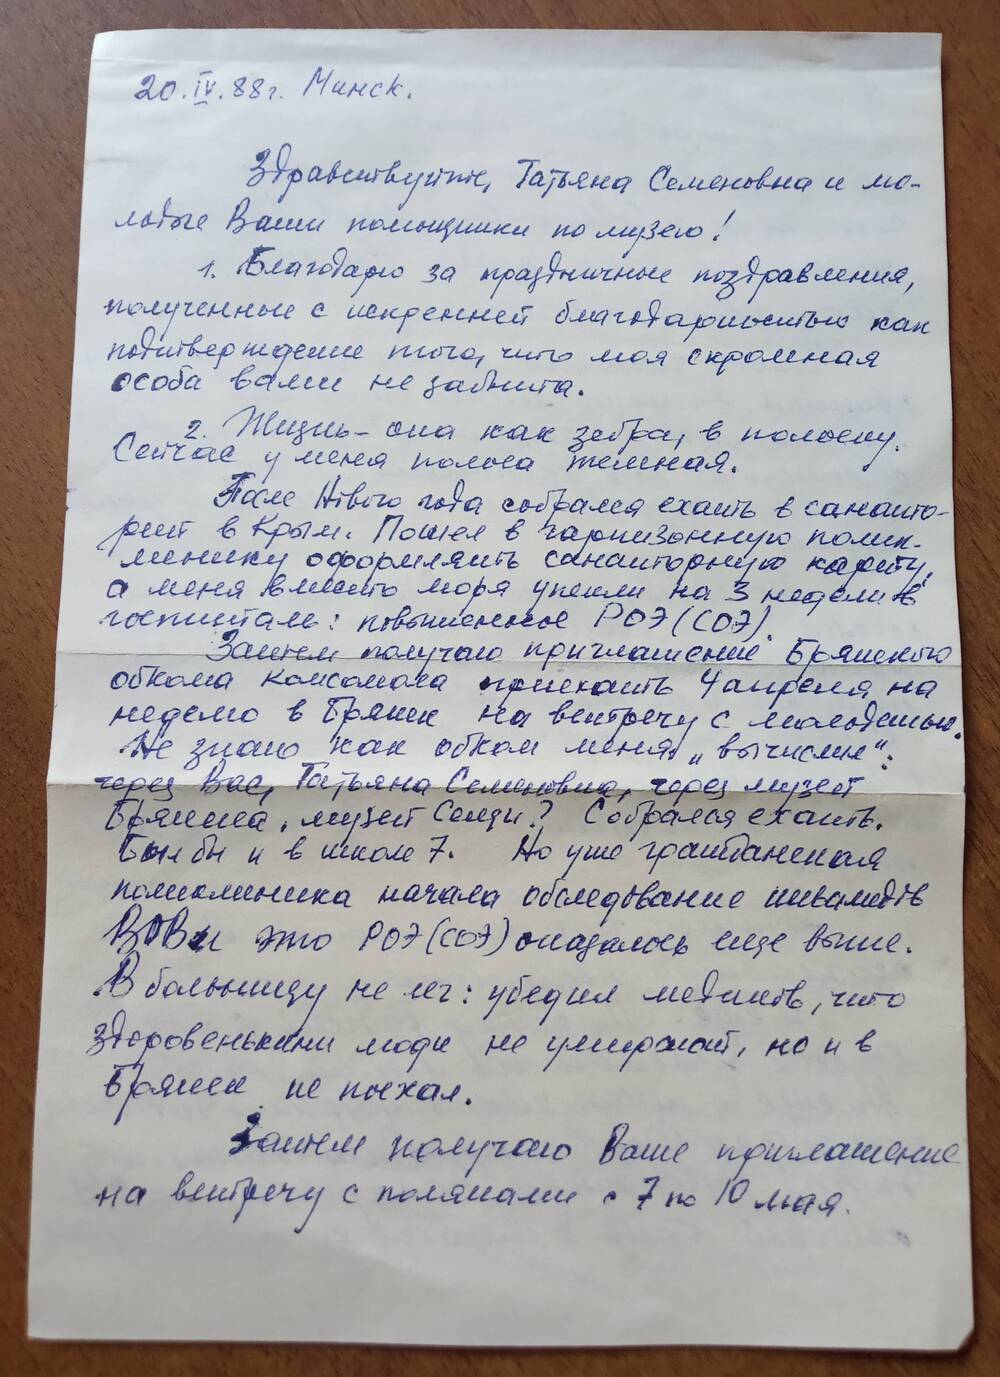 20.IV.88г. Минск.
Здравствуйте, Татьяна Семеновна и мо-
лодые Ваши помощники по музею!
1. Благодарю за праздничные поздравления,
полученные с искренней благодарностью как
подтверждение того, что моя скромная
особа вами не забыта.
2. Жизнь – она как зебра, в полоску.
Сейчас у меня полоса темная.
После Нового года собрался ехать в санато-
рий в Крым. Пошел в гарнизонную полик-
линику оформлять санаторную карту,
а меня вместо моря упекли на 3 недели в
госпиталь: повышенное РОЭ (СОЭ).
Затем получаю приглашение Брянского
обкома комсомола приехать 4 апреля на
неделю в Брянск на встречу с молодежью.
Не знаю как обком меня „вычислил":
через Вас, Татьяна Семеновна, через музей
Брянска, музей Сещи? Собрался ехать.
Был бы и в школе 7. Но уже гражданская
поликлиника начала обследование инвалидов
ВОВ и это РОЭ (СОЭ) оказалось еще выше.
В больницу не лег: убедил медиков, что
здоровенькими люди не умирают, но и в
Брянск не поехал.
Затем получаю Ваше приглашение
на встречу с поляками с 7 по 10 мая.